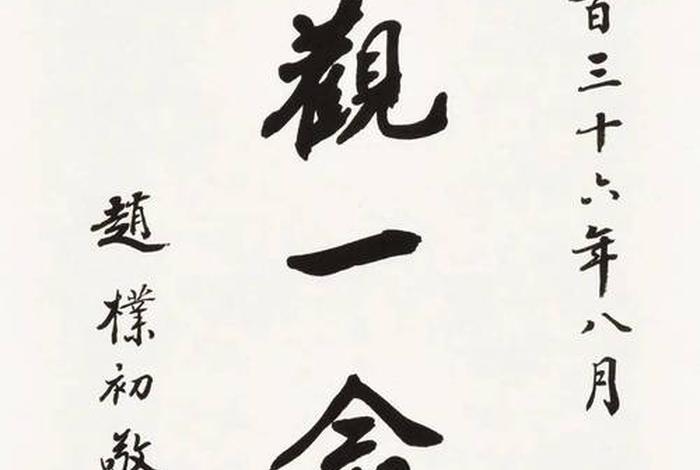 百三十六年八月
觀一念
趙樸初敬